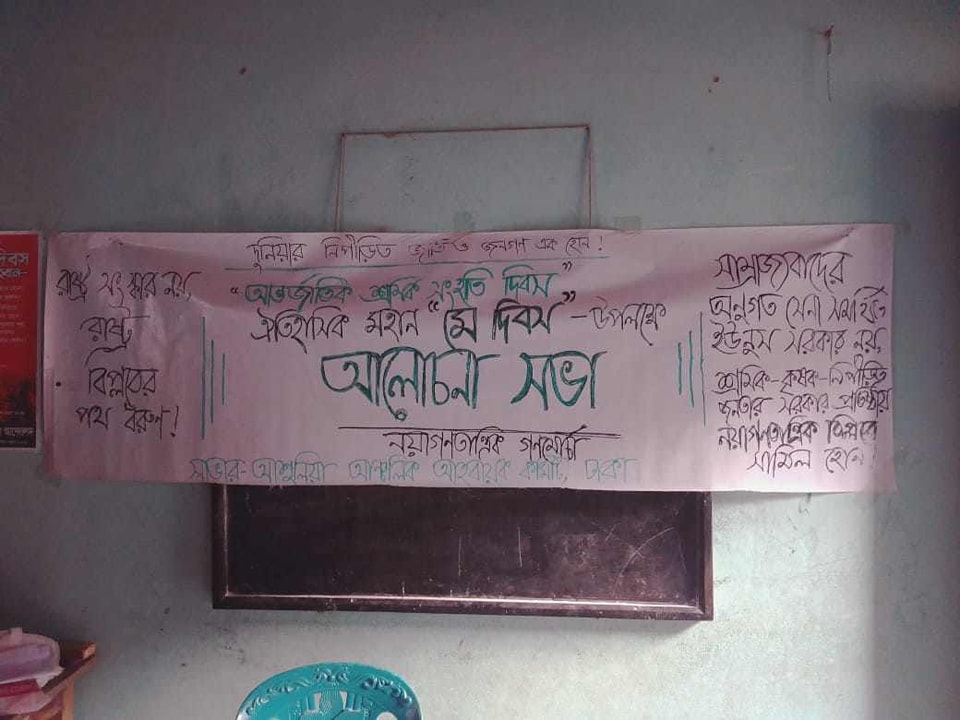 দুনিয়ার নিপীড়িত জাতি ও জনগণ এক হোন!
"আন্তর্জাতিক শ্রমিক সংহতি দিবস"
ঐতিহাসিক মহান "মে দিবস" -উপলক্ষে
আলোচনা সভা
নয়াগণতান্ত্রিক গণমোর্চা
সাভার-আশুলিয়া আঞ্চলিক আহবায়ক কমিটি, ঢাকা
রাষ্ট্র সংস্কার নয়,
রাষ্ট্র
বিপ্লবের
পথ ধরুন!
সাম্রাজ্যবাদের
অনুগত সেনা সমর্থিত
ইউনুস সরকার নয়,
শ্রমিক-কৃষক-নিপীড়িত
জনতার সরকার প্রতিষ্ঠায়
নয়াগণতান্ত্রিক বিপ্লবে
সামিল হোন!
দিবস